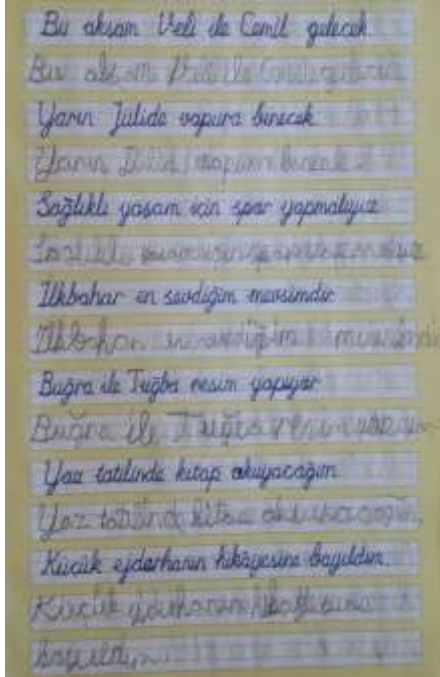 Bu akşam Veli ile Cemil gelecek.
Bu akşam Veli ile Cemil gelecek
Yarın Jülide vapura binecek.
Yarın vapura binecek
Sağlıklı yaşam için spor yapmalıyız.
Sağlıklı
İlkbahar en sevdiğim mevsimdir.
İlkbahar en sevdiğim
Buğra ile Tuğba resim yapıyor.
Buğra ile Tuğba resim
Yaz tatilinde kitap okuyacağım.
Yaz tatilinde kitap okuyacağım
Küçük ejderhanın hikâyesine bayıldım.
Küçük ejderhanın
bayıldım